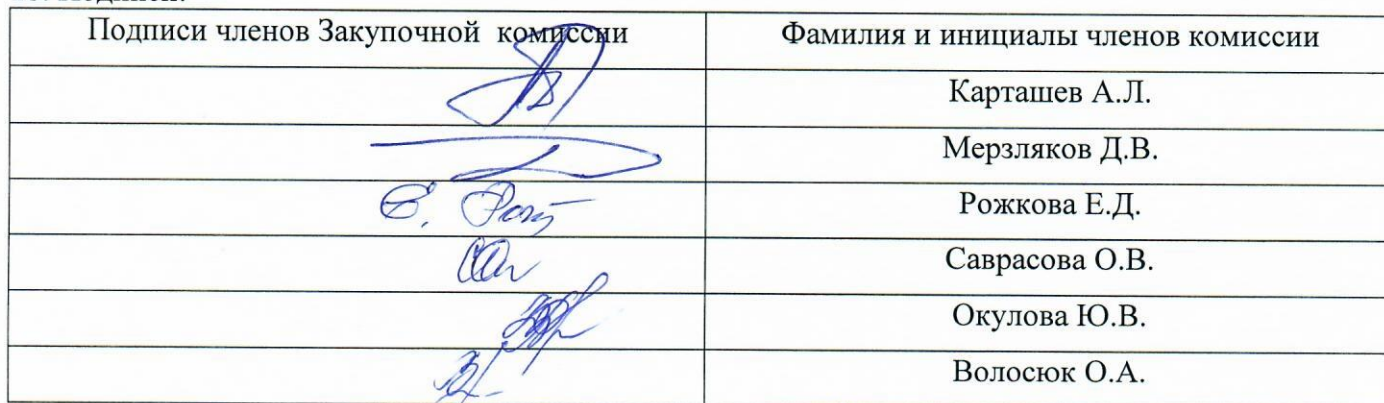 Подписи членов Закупочной комиссии
Фамилия и инициалы членов комиссии
Карташев А.Л.
Мерзляков Д.В.
Рожкова Е.Д.
Саврасова О.В.
Окулова Ю.В.
Волосюк О.А.